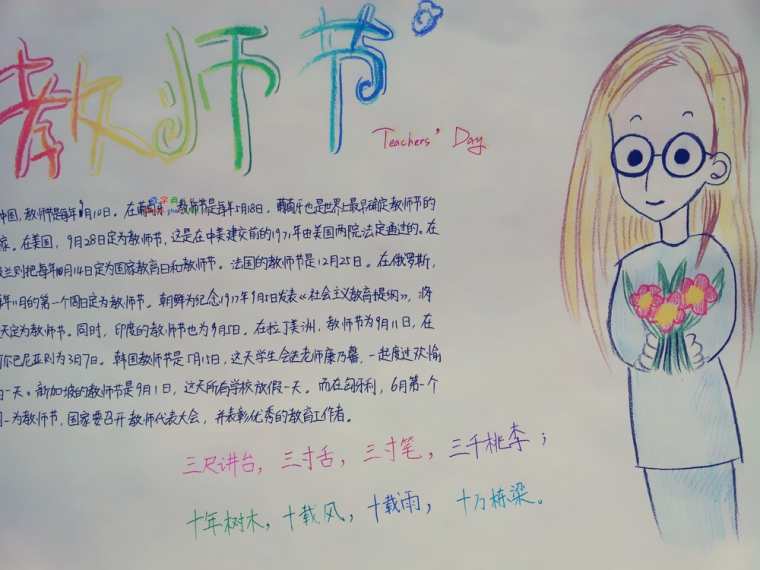 教师节
Teachers' Day
中国，教师节是每年9月10日。在葡萄牙，教师节是每年5月18日。葡萄牙也是世界上最早确定教师节的
家。在美国，9月28日定为教师节，这是在中美建交前的1971年由美国两院法定通过的。在
兰则把每年10月14日定为国家教育日和教师节。法国的教师节是12月25日。在俄罗斯，
年11月的第一个周日定为教师节。朝鲜为纪念1977年9月5日发表《社会主义教育提纲》，将
天定为教师节。同时，印度的教师节也为9月5日。在拉丁美洲，教师节为9月11日，在
尔巴尼亚则为3月7日。韩国教师节是5月15日，这天学生会送老师康乃馨，一起度过欢愉
一天。新加坡的教师节是9月1日，这天所有学校放假一天。而在匈牙利，6月第一个
一为教师节，国家要召开教师代表大会，并表彰优秀的教育工作者。
三尺讲台，三寸舌，三寸笔，三千桃李；
十年树木，十载风，十载雨，十万栋梁。